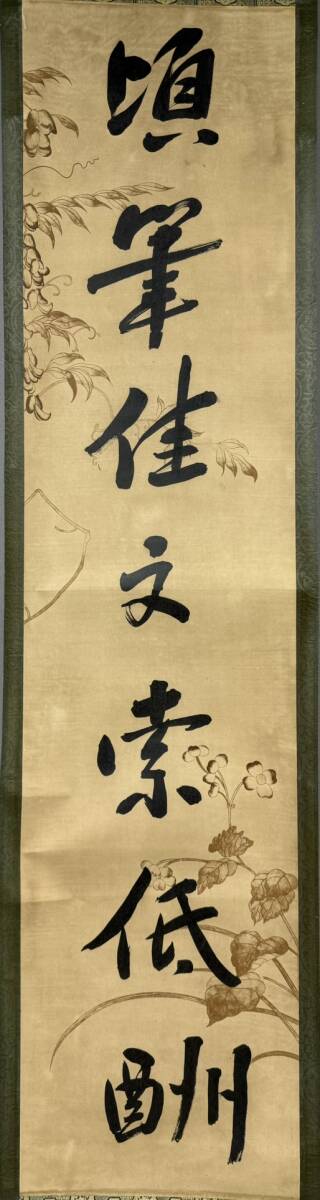 頃筆佳文索低酬